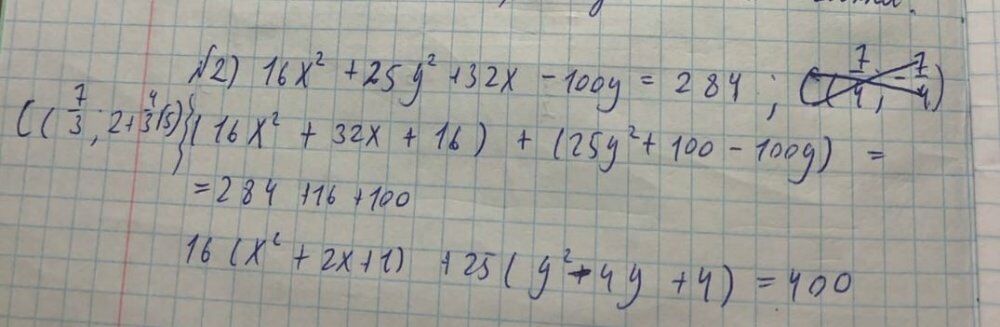 №2) 16x² + 25y² + 32x - 100y = 284 ; C(7/4; -7/4)
C(7/3; 2+4/3√5) (16x² + 32x + 16) + (25y² + 100 - 100y) =
= 284 + 16 + 100
16(x² + 2x + 1) + 25(y² - 4y + 4) = 400